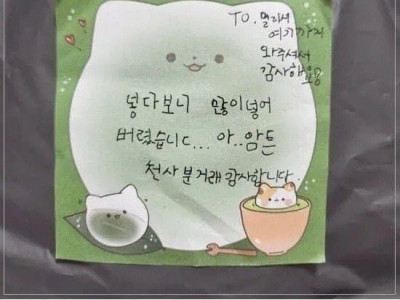 TO. 멀리서
여기까지
와주셔서
감사해요
넣다보니 많이넣어
버렸습니다... 아..암튼
천사분 거래 감사합니다